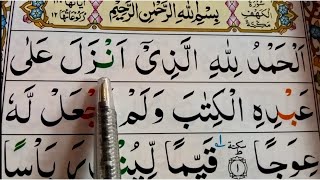 بِسْمِ اللّٰهِ الرَّحْمٰنِ الرَّحِيْمِ
اَلْحَمْدُ لِلّٰهِ الَّذِيْٓ اَنْزَلَ عَلٰى
عَبْدِهِ الْكِتٰبَ وَلَمْ يَجْعَلْ لَّهٗ
عِوَجًا ۜ ﴿١﴾ قَيِّمًا لِّيُنْذِرَ بَاْسًا